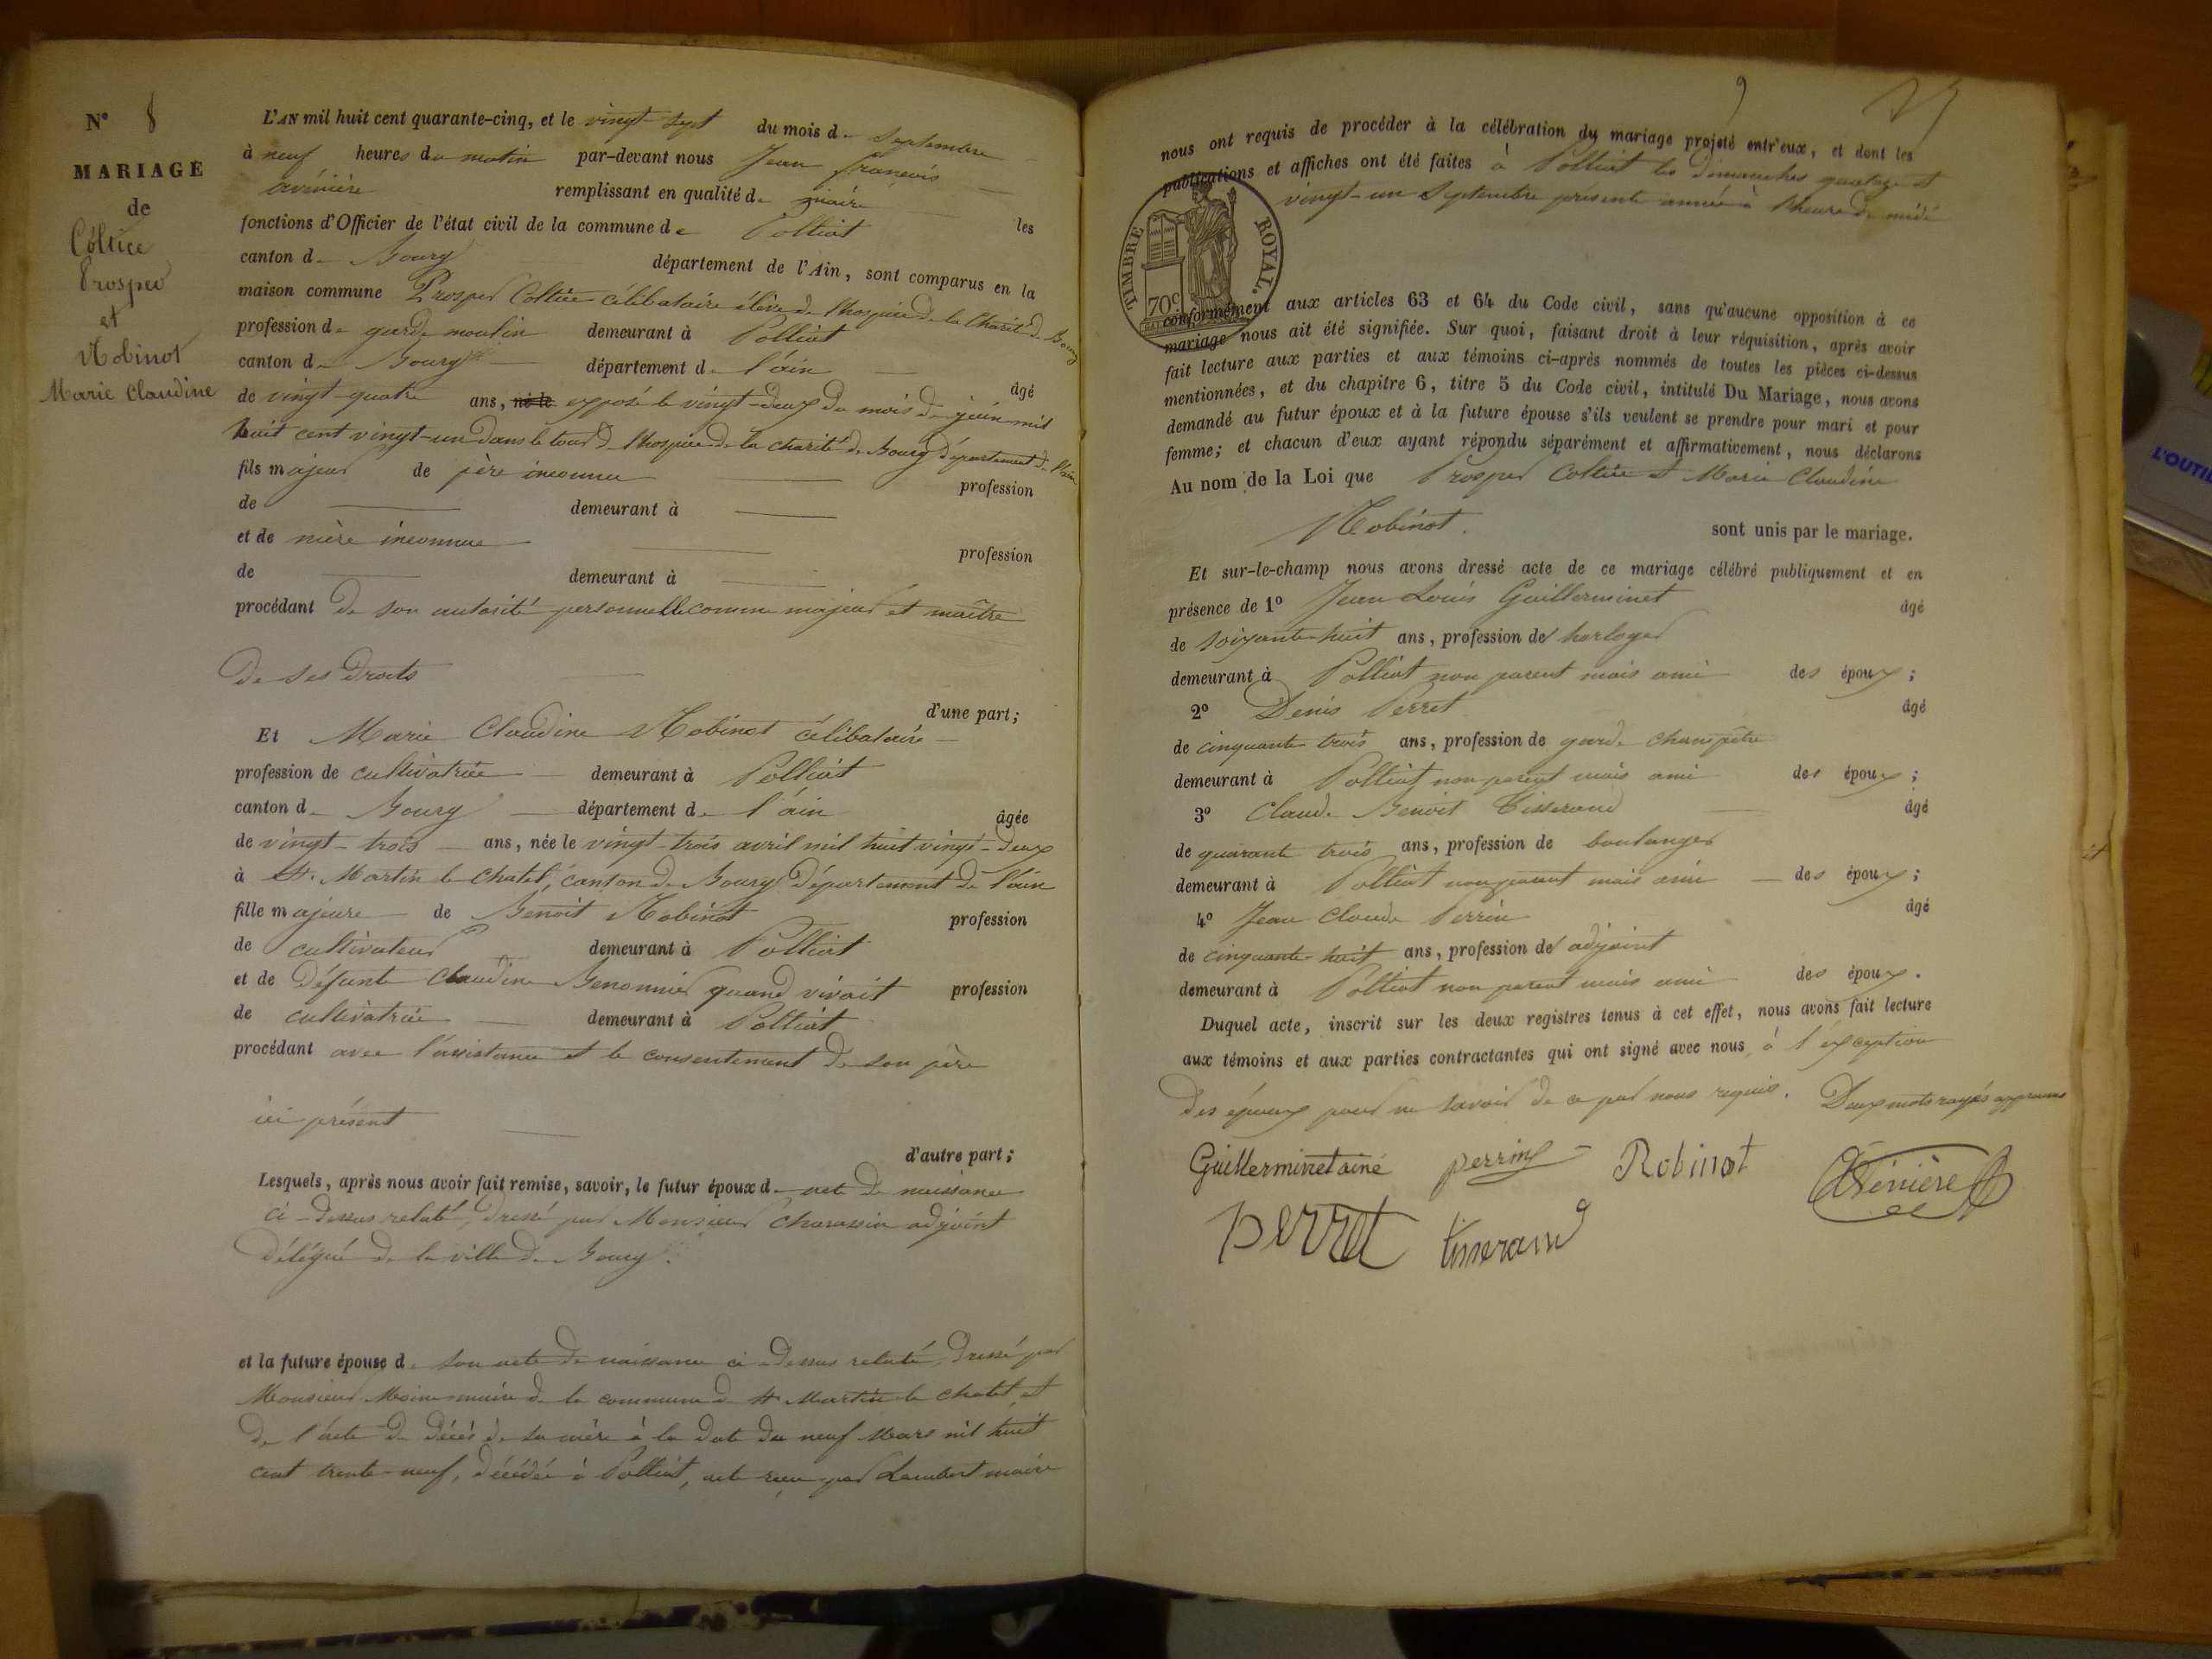 N° 8
MARIAGE
de
Coltice
Prosper
et
Robinot
Marie Claudine
L'AN mil huit cent quarante-cinq, et le vingt-sept du mois de septembre
à neuf heures du matin par-devant nous Jean françois
avénière remplissant en qualité de maire les
fonctions d'Officier de l'état civil de la commune de Polliat
canton de Bourg département de l'Ain, sont comparus en la
maison commune Prosper Coltice célibataire élève de l'hospice de la Charité de Bourg
profession de garde moulin demeurant à Polliat
canton de Bourg département de l'ain âgé
de vingt-quatre ans, né le exposé le vingt-deux du mois de juin mil
huit cent vingt-un dans le tour de l'hospice de la charité de Bourg département de l'ain
fils majeur de père inconnu profession
de demeurant à
et de mère inconnue profession
de demeurant à
procédant de son autorité personnelle comme majeur et maître
de ses droits
d'une part;
Et Marie Claudine Robinot célibataire
profession de cultivatrice demeurant à Polliat
canton de Bourg département de l'ain âgée
de vingt-trois ans, née le vingt-trois avril mil huit vingt-deux
à St. Martin le chatel, canton de Bourg département de l'ain
fille majeure de Benoit Robinot profession
de cultivateur demeurant à Polliat
et de défunte Claudine quand vivait profession
de cultivatrice demeurant à Polliat
procédant avec l'assistance et le consentement de son père
ici présent
d'autre part;
Lesquels, après nous avoir fait remise, savoir, le futur époux d. acte de naissance
ci-dessus relaté, dressé par Monsieur Charassin adjoint
délégué de la ville de Bourg.
et la future épouse de son acte de naissance ci-dessus relaté, dressé par
Monsieur maire de la commune de St Martin le chatel, et
de l'acte de décès de sa mère à la date du neuf Mars mil huit
cent trente-neuf, décédée à Polliat, acte reçu par Lambert maire
9
nous ont requis de procéder à la célébration du mariage projeté entr'eux, et dont les
publications et affiches ont été faites à Polliat les dimanches quatorze et
vingt-un septembre présente année à l'heure de midi
TIMBRE ROYAL.
70c
conformément aux articles 63 et 64 du Code civil, sans qu'aucune opposition à ce
mariage nous ait été signifiée. Sur quoi, faisant droit à leur réquisition, après avoir
fait lecture aux parties et aux témoins ci-après nommés de toutes les pièces ci-dessus
mentionnées, et du chapitre 6, titre 5 du Code civil, intitulé Du Mariage, nous avons
demandé au futur époux et à la future épouse s'ils veulent se prendre pour mari et pour
femme; et chacun d'eux ayant répondu séparément et affirmativement, nous déclarons
Au nom de la Loi que Prosper Coltice et Marie Claudine
Robinot. sont unis par le mariage.
Et sur-le-champ nous avons dressé acte de ce mariage célébré publiquement et en
présence de 1° Jean Louis Guillerminet âgé
de soixante-huit ans, profession de horloger
demeurant à Polliat non parent mais ami des époux;
2° Denis Perret âgé
de cinquante trois ans, profession de garde champêtre
demeurant à Polliat non parent mais ami des époux;
3° Claude Benoit Tisserand âgé
de quarante trois ans, profession de boulanger
demeurant à Polliat non parent mais ami des époux;
4° Jean Claude Perrin âgé
de cinquante-huit ans, profession de adjoint
demeurant à Polliat non parent mais ami des époux.
Duquel acte, inscrit sur les deux registres tenus à cet effet, nous avons fait lecture
aux témoins et aux parties contractantes qui ont signé avec nous, à l'exception
des époux pour ne savoir de ce par nous requis. Deux mots rayés approuvés
Guillerminet ainé perrin Robinot Avénière
perret tisserand
L'OUTIL